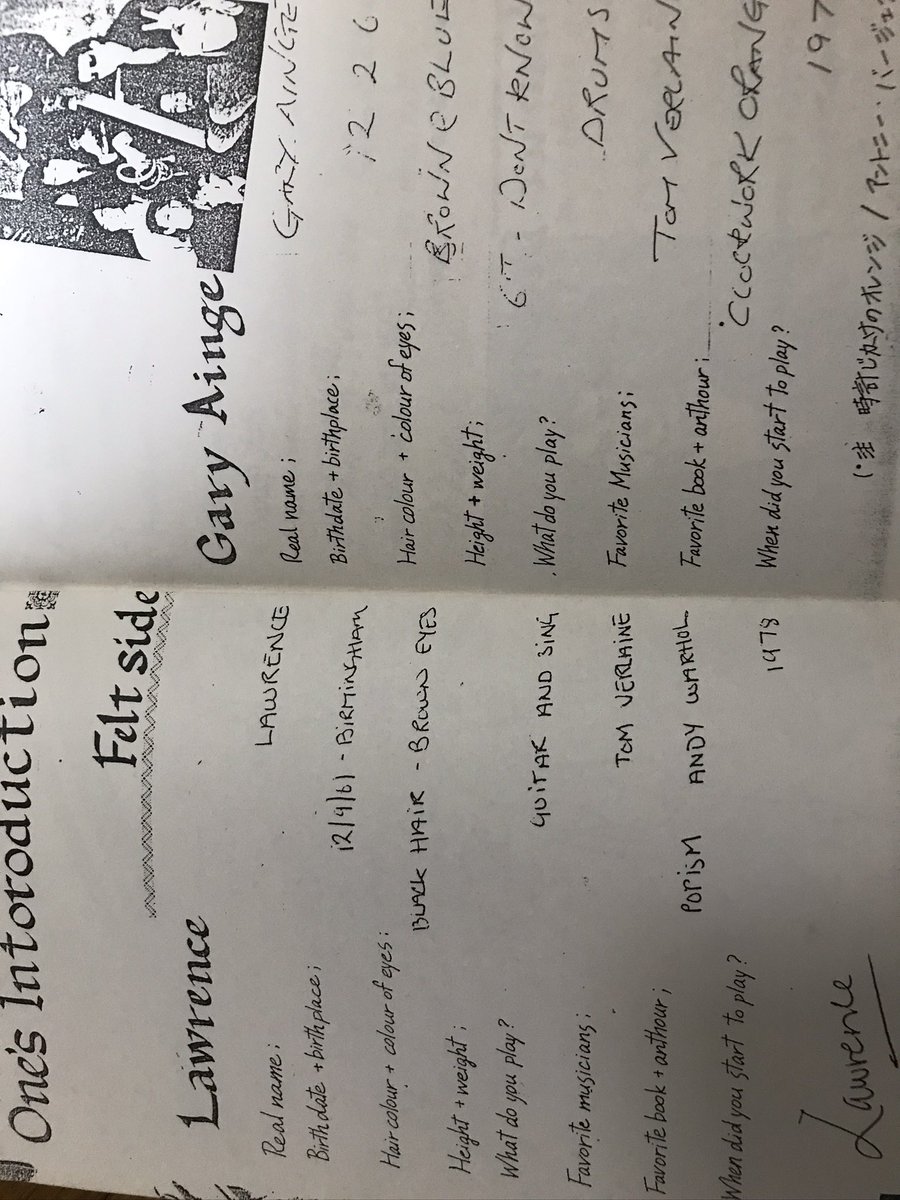 One's Intoroduction
Felt side
Lawrence
Real name; LAWRENCE
Birthdate + birthplace; 12/9/61 - BIRMINGHAM
Hair colour + colour of eyes; BLACK HAIR - BROWN EYES
Height + weight;
What do you play? GUITAR AND SING
Favorite musicians; TOM VERLAINE
Favorite book + anthour; POPISM ANDY WARHOL
When did you start to play? 1978
Lawrence
Gary Ainge
Real name; GARY AINGE
Birthdate + birthplace; 12 2 6
Hair colour + colour of eyes; BROWN @ BLUE
Height + weight; 6FT - DONT KNOW
What do you play? DRUMS
Favorite Musicians; TOM VERLAIN
Favorite book + anthour; CLOCKWORK ORANG
When did you start to play? 197
(・注 時計じかけのオレンジ / アントニー・バージェ